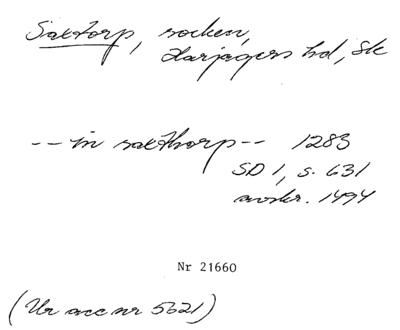 Saxtorp, socken,
Harjagers hd, Sk
-- in saxthorp -- 1283
SD 1, s. 631
avskr. 1494
Nr 21660
(Ur acc nr 5621)